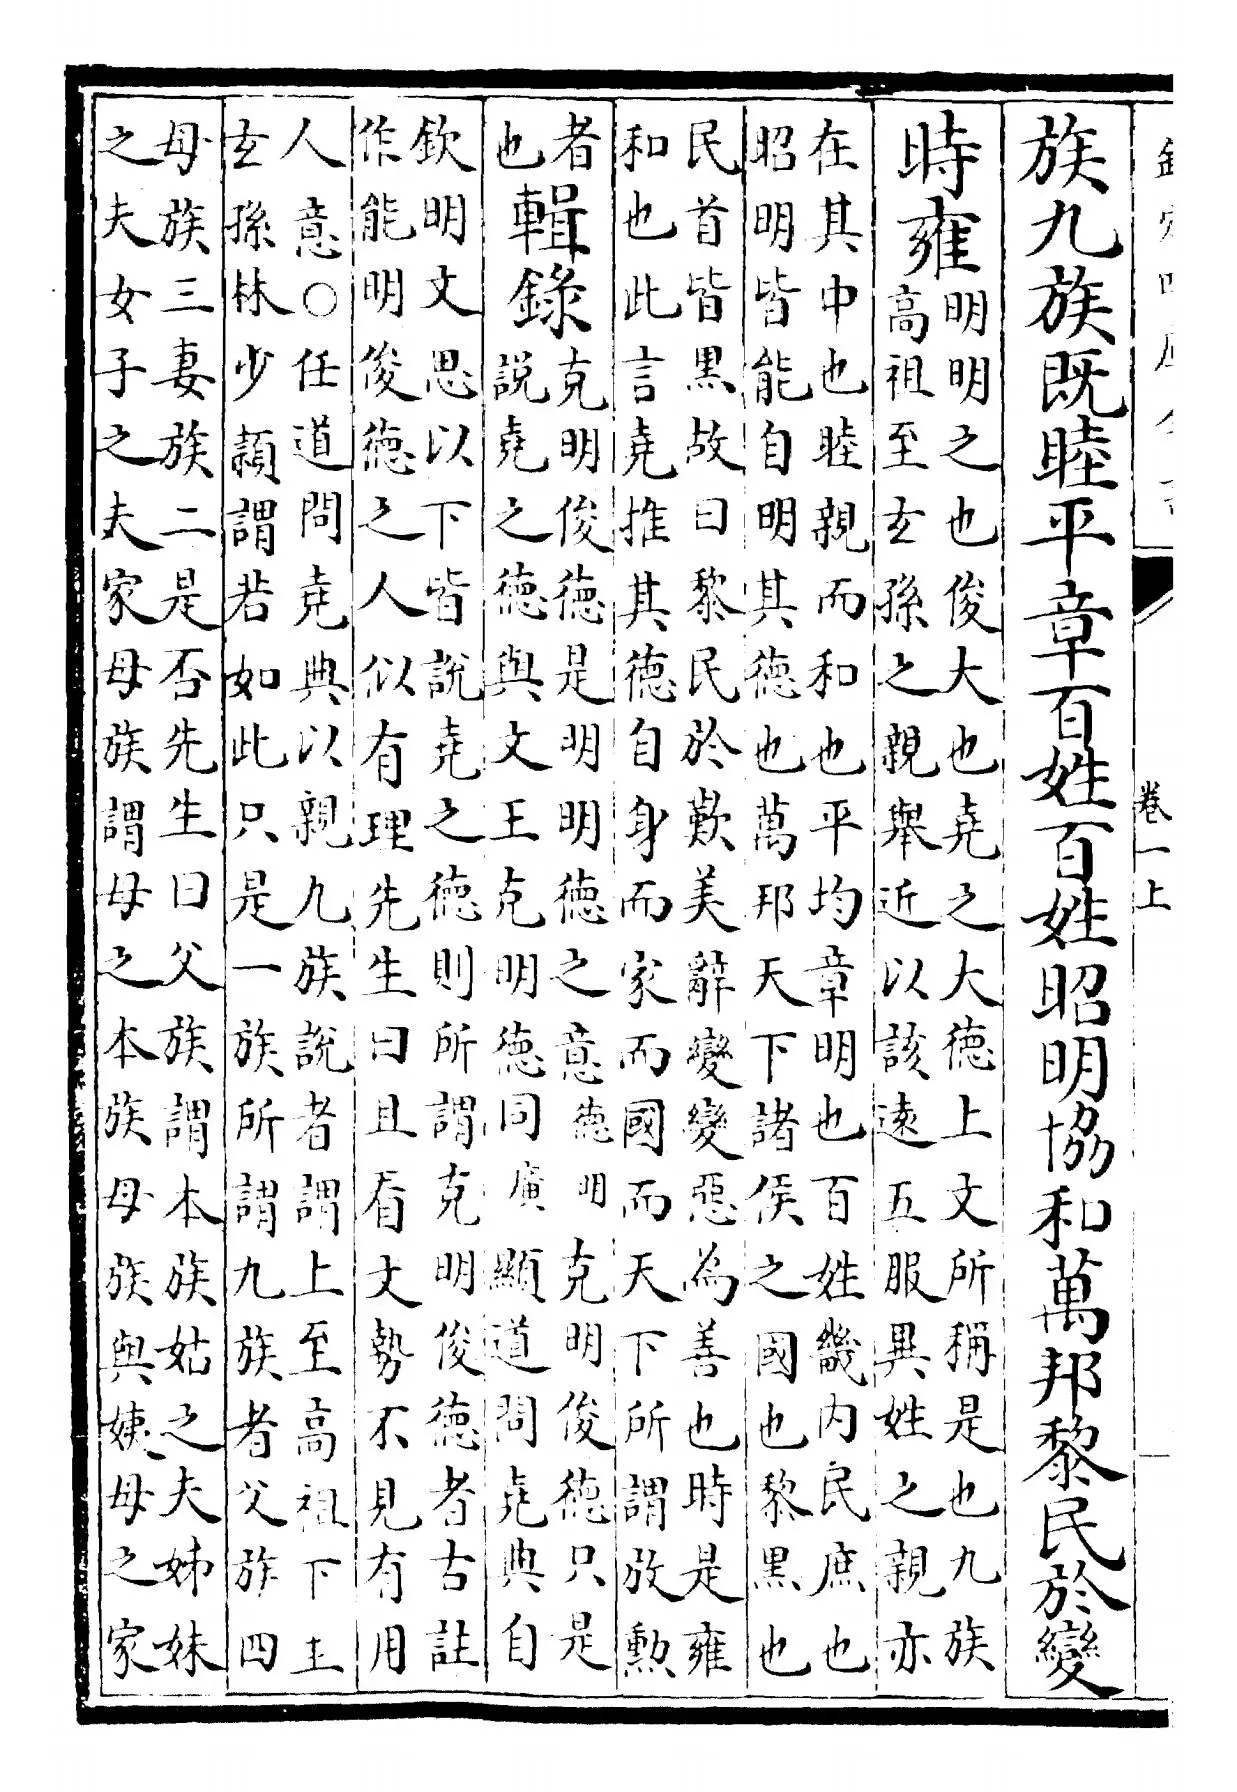 卷一上
族九族既睦平章百姓百姓昭明協和萬邦黎民於變
時雍
明明之也俊大也堯之大德上文所稱是也九族
高祖至玄孫之親舉近以該遠五服異姓之親亦
在其中也睦親而和也平均章明也百姓畿内民庶也
昭明皆能自明其德也萬邦天下諸侯之國也黎黑也
民首皆黑故曰黎民於歎美辭變變惡為善也時是雍
和也此言堯推其德自身而家而國而天下所謂放勲
者
也
輯錄
克明俊德是明明德之意德明克明俊德只是
說堯之德與文王克明德同廣顯道問堯典自
欽明文思以下皆說堯之德則所謂克明俊德者古註
作能明俊德之人似有理先生曰且看文勢不見有用
人意○任道問堯典以親九族說者謂上至高祖下至
玄孫林少頴謂若如此只是一族所謂九族者父族四
母族三妻族二是否先生曰父族謂本族姑之夫姊妹
之夫女子之夫家母族謂母之本族母族與姨母之家